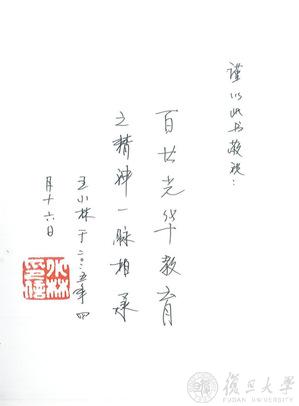 谨以此书敬祝：
百廿光华教育
之精神一脉相承
王小林于二〇二五年四
月十六日
小林
印信
復旦大學
FUDAN UNIVERSITY